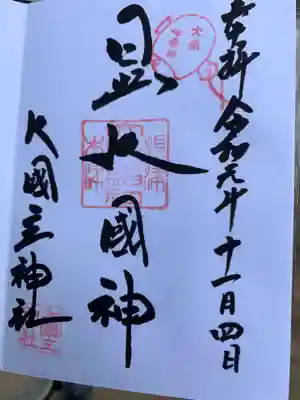 奉拝 令和元年十一月四日
显大國神
大國主神社